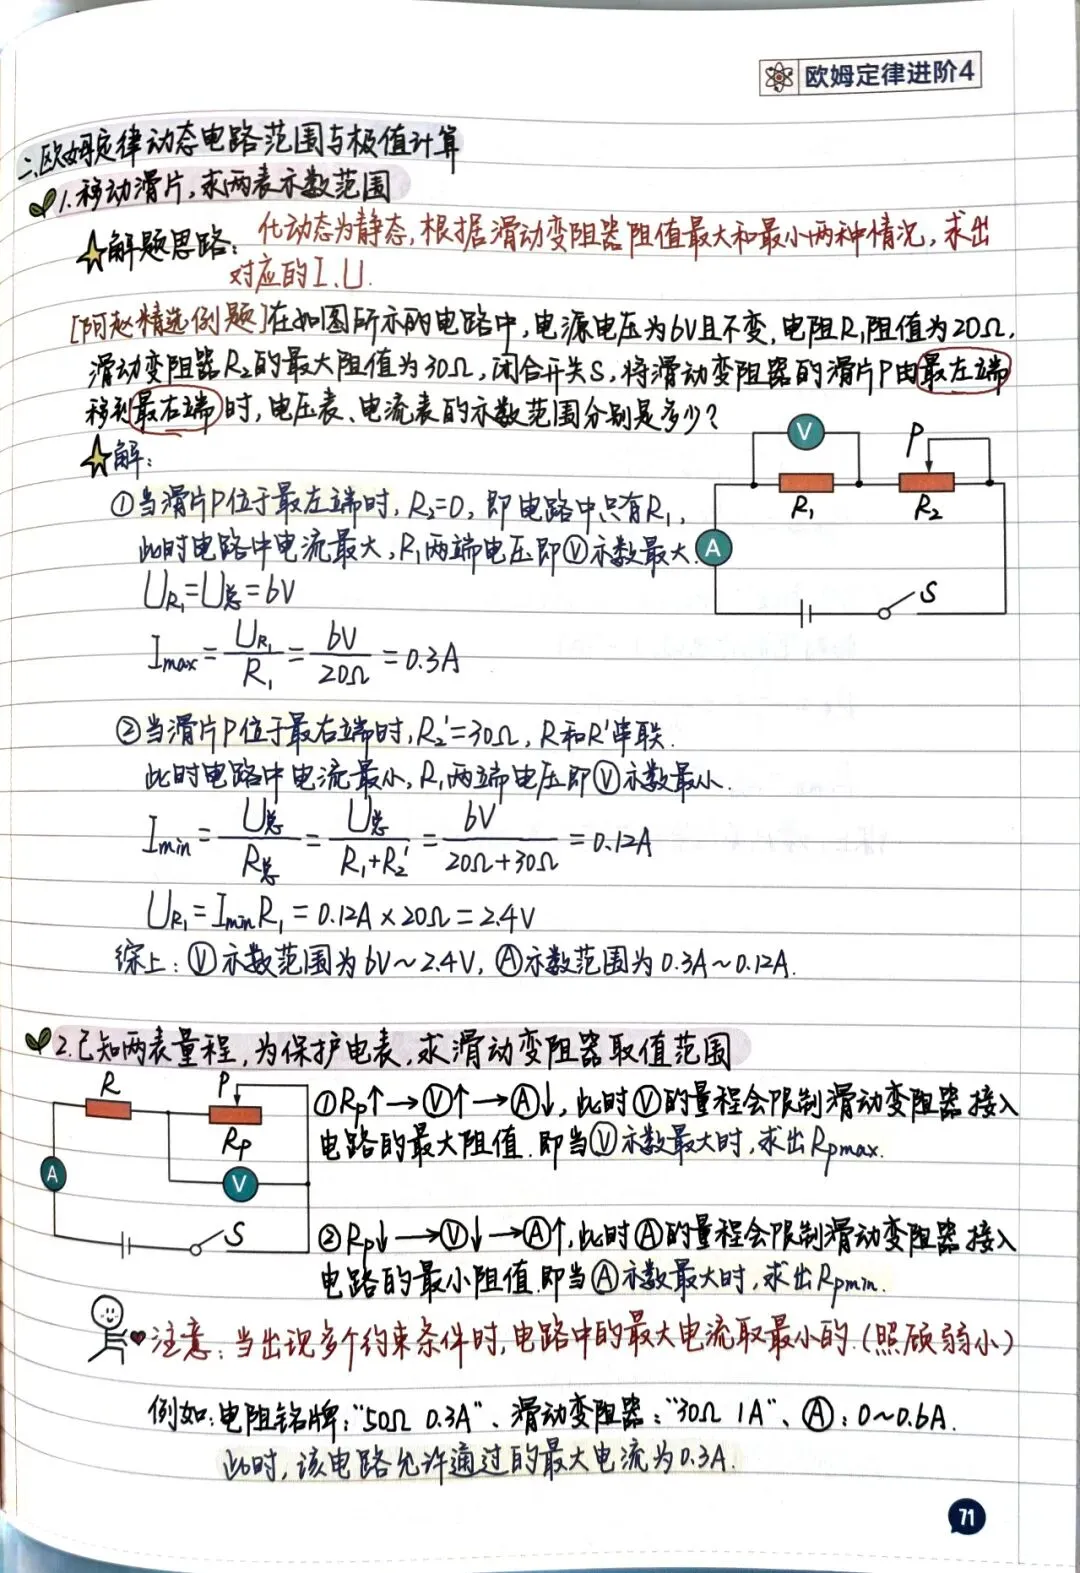 欧姆定律进阶4
二、欧姆定律动态电路范围与极值计算
1.移动滑片,求两表示数范围
解题思路:化动态为静态,根据滑动变阻器阻值最大和最小两种情况,求出
对应的I、U.
[阿赵精选例题]在如图所示的电路中,电源电压为6V且不变,电阻R₁阻值为20Ω,
滑动变阻器R₂的最大阻值为30Ω,闭合开关S,将滑动变阻器的滑片P由最左端
移到最右端时,电压表、电流表的示数范围分别是多少?
解:
V
P
R₁
R₂
A
S
①当滑片P位于最左端时,R₂=0,即电路中只有R₁,
此时电路中电流最大,R₁两端电压即Ⓥ示数最大.
U_R₁=U总=6V
Imax=U_R₁/R₁=6V/20Ω=0.3A
②当滑片P位于最右端时,R₂'=30Ω,R和R'串联.
此时电路中电流最小,R₁两端电压即Ⓥ示数最小.
Imin=U总/R总=U总/(R₁+R₂')=6V/(20Ω+30Ω)=0.12A
U_R₁=IminR₁=0.12A×20Ω=2.4V
综上:Ⓥ示数范围为6V~2.4V,Ⓐ示数范围为0.3A~0.12A.
2.已知两表量程,为保护电表,求滑动变阻器取值范围
R
P
Rp
A
V
S
①Rp↑→Ⓥ↑→Ⓐ↓,此时Ⓥ的量程会限制滑动变阻器接入
电路的最大阻值.即当Ⓥ示数最大时,求出Rpmax.
②Rp↓→Ⓥ↓→Ⓐ↑,此时Ⓐ的量程会限制滑动变阻器接入
电路的最小阻值.即当Ⓐ示数最大时,求出Rpmin.
注意:当出现多个约束条件时,电路中的最大电流取最小的.(照顾弱小)
例如:电阻铭牌:"50Ω 0.3A"、滑动变阻器:"30Ω 1A"、Ⓐ:0~0.6A.
此时,该电路允许通过的最大电流为0.3A.
71